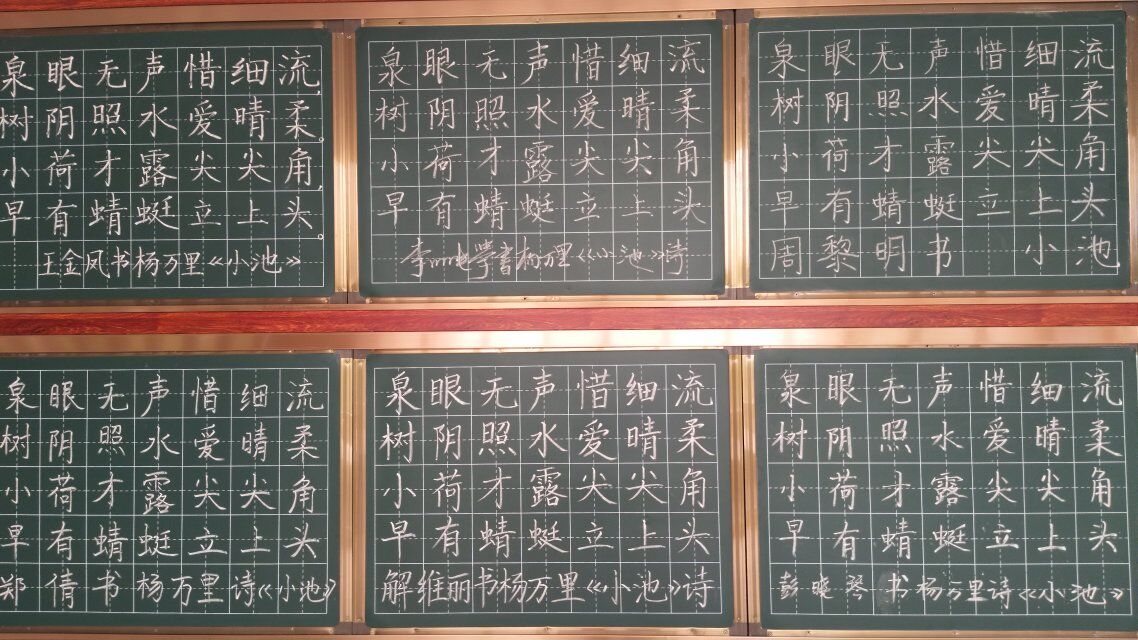 泉眼无声惜细流,
树阴照水爱晴柔。
小荷才露尖尖角,
早有蜻蜓立上头。
王金凤书杨万里《小池》
泉眼无声惜细流
树阴照水爱晴柔
小荷才露尖尖角
早有蜻蜓立上头
李 學書杨万里《小池》诗
泉眼无声惜细流
树阴照水爱晴柔
小荷才露尖尖角
早有蜻蜓立上头
周黎明书 小池
泉眼无声惜细流
树阴照水爱晴柔
小荷才露尖尖角
早有蜻蜓立上头
郑倩书杨万里诗《小池》
泉眼无声惜细流
树阴照水爱晴柔
小荷才露尖尖角
早有蜻蜓立上头
解维丽书杨万里《小池》诗
泉眼无声惜细流
树阴照水爱晴柔
小荷才露尖尖角
早有蜻蜓立上头
彭晓琴 书杨万里诗《小池》